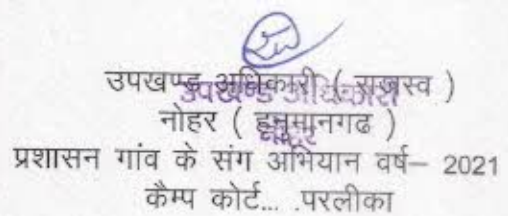 उपखण्ड अधिकारी ( राजस्व )
उपखण्ड अधिकारी
नोहर ( हनुमानगढ )
नोहर
प्रशासन गांव के संग अभियान वर्ष– 2021
कैम्प कोर्ट... .परलीका